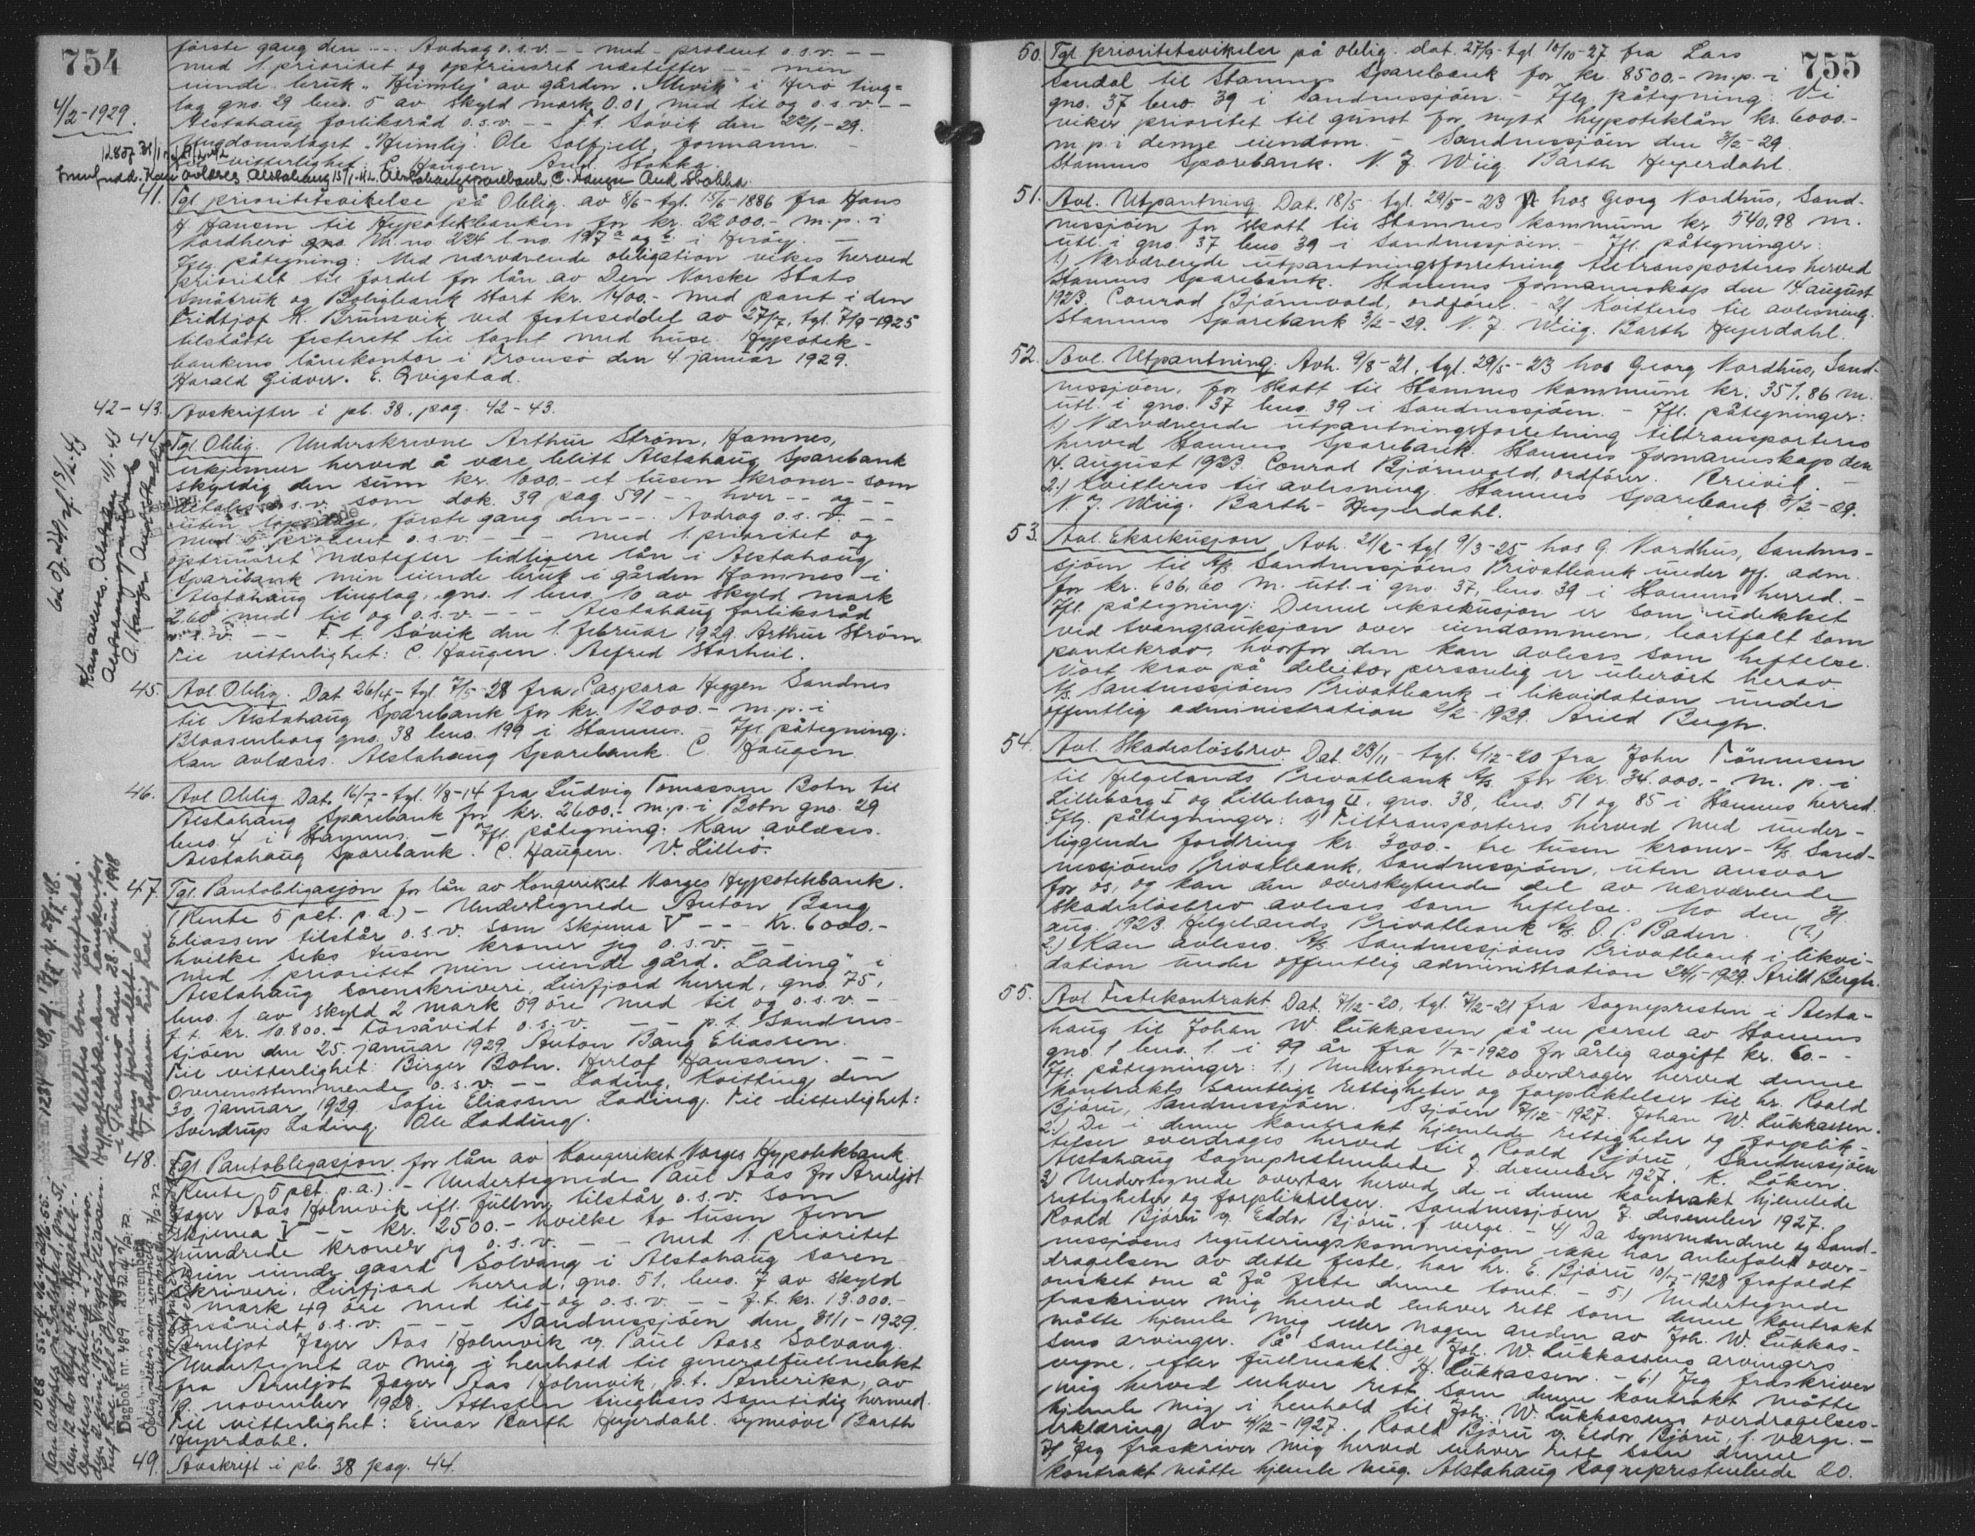 754
første gang den --- Avdrag o.s.v. -- med - procent o.s.v. --
med 1. prioritet og optrinsret næstefter -- min
eiende bruk "Heimly" av gården "Ulevik" i Herø ting=
lag gno. 29 bno. 5 av skyld mark 0.01, med til og o.s.v. --
4/2-1929.
Alstahaug forliksråd o.s.v. -- F.t. Søvik den 22/1-29.
Ungdomslaget "Heimly" Ole Solfjell, formann. -
Til vitterlighet: C. Haugen. Aud. Stokka.
Kan avlæses Alstahaug 15/1-42. Alstahaug sparebank C. Haugen Aud Stokka
41. Tgl prioritetsvikelse på Oblig. av 8/6- tgl. 15/6-1886 fra Hans
J Hansen til Hypotekbanken for kr. 22000.- m.p. i
Nordherø gno. M. no 224 l no 197a og c i Herøy. -
Iflg påtegning: Med nærværende obligation vikes herved
prioritet til fordel for lån av Den Norske Stats
Småbruk og Boligbank stort kr. 1400.- med pant i den
Fridtjof K. Brunsvik ved festeseddel av 27/7, tgl. 7/9-1925
tilståtte festerett til tomt med huse. Hypotek-
bankens lånekontor i Tromsø den 4 januar 1929.
Harald Giæver. E. Qvigstad.
42-43. Avskrifter i pb. 38, pag. 42-43.
44. Tgl. Oblig. Underskrevne Arthur Strøm, Hamnes,
erkjenner herved å være blitt Alstahaug Sparebank
skyldig den sum kr. 1000.- et tusen kroner - som
betales o.s.v. som dok. 39 pag 591 -- hver -- og --
uten opsigelse, første gang den -- Avdrag o.s.v. --
med 6 procent o.s.v. -- -- med 1. prioritet og
optrinsret næstefter tidligere lån i Alstahaug
Sparebank min eiende bruk i gården Hamnes i
Alstahaug tinglag, gno. 1 bno. 10 av skyld mark
2.60 med til og o.s.v. --- Alstahaug forliksråd
o.s.v. -- F.t. Søvik den 1. februar 1929. Arthur Strøm.
Til vitterlighet: C. Haugen. Alfred Storheil.
45. Avl Oblig. Dat 26/4- tgl. 7/5-28 fra Caspara Heggen Sandnes
til Alstahaug Sparebank for kr. 12000.- m.p. i
Blaasenborg gno. 38 bno. 199 i Stamnes. - Ifl påtegning:
Kan avlæses. Alstahaug Sparebank. C. Haugen
46. Avl Oblig. Dat. 16/7- tgl. 1/8-14 fra Ludvig Tomassen Botn til
Alstahaug Sparebank for kr. 2600.- m.p. i Botn gno. 29
bno. 4 i Stamnes. - Ifl. påtegning: Kan avlæses.
Alstahaug Sparebank. C. Haugen. V. Lillø.
47. Tgl. Pantobligasjon for lån av Kongeriket Norges Hypotekbank.
(Rente 5 pct. p.a.) - Undertegnede Anton Bang
Eliassen tilstår o.s.v. som skjema V --- Kr. 6000.-
hvilke seks tusen kroner jeg o.s.v. ---
med 1 prioritet min eiende gård "Lading" i
Alstahaug sorenskriveri, Leirfjord herred, gno. 75,
bno. 1 av skyld 2 mark 59 øre med til og o.s.v. --
f.t. kr. 10.800.- Forsåvidt o.s.v. -- -- p.t. Sandnes-
sjøen den 25. januar 1929 Anton Bang Eliassen.
Til vitterlighet: Birger Botn. Herlof Hanssen. --
Overenstemmende o.s.v. -- Lading, Kvitting, den
30. januar 1929 Sofie Eliassen Lading. Til vitterlighet:
Sverdrup Lading. Ole Ladding.
48. Tgl. Pantobligasjon for lån av Kongeriket Norges Hypotekbank.
Rente 5 pct. p.a.) - Undertegnede Paul Aas for Arnljot
Jæger Aas Holmvik ifl. fullm. tilstår o.s.v. som
skjema V - kr. 2500.- hvilke to tusen fem
hundrede kroner jeg o.s.v. -- med 1. prioritet
min eiende gaard Solvang i Alstahaug soren-
skriveri, Leirfjord herred, gno. 51, bno. 7 av skyld
mark 49 øre med til og o.s.v. -- f.t. kr. 13.000.-
Forsåvidt o.s.v. --- Sandnessjøen den 31/1-1929.
Arnljot Jæger Aas Holmvik v. Paul Aas Solvang.
Undertegnet av mig i henhold til generalfullmakt
fra Arnljot Jæger Aas Holmvik, p.t. Amerika, av
19. november 1928. Attesten tingleses samtidig hermed.
Til vitterlighet: Einar Barth Heyerdahl. Synnøve Barth
Heyerdahl.
49. Avskrift i pb. 38 pag. 44.
Dagbok nr. 489
755
50. Tgl prioritetsvikelse på oblig. dat. 27/9- tgl 10/10-27 fra Lars
Sandal til Stamnes Sparebank for kr. 8500.- m.p. i
gno. 37 bno. 39 i Sandnessjøen. - Iflg påtegning: Vi
viker prioritet til gunst for nytt hypoteklån kr. 6000.-
m.p. i denne eiendom. - Sandnessjøen den 3/2-29.
Stamnes Sparebank. N J. Wiig Barth Heyerdahl.
51. Avl. Utpantning Dat. 18/5- tgl. 29/5-23 hos Georg Nordhus, Sand-
nessjøen for skatt til Stamnes kommune kr. 540,98 m.
utl. i gno. 37 bno. 39 i Sandnessjøen. - Ifl. påtegninger:
1) Nærværende utpantningsforretning tiltransporteres herved
Stamnes Sparebank. Stamnes formannskap den 14 august
1923. Conrad Bjørnvold, ordfører. - 2) Kvitteres til avlesning.
Stamnes Sparebank 3/2-29. N. J. Wiig. Barth Heyerdahl.
52. Avl. Utpantning. Avh. 9/8-21, tgl. 29/5-23 hos Georg Nordhus, Sand-
nessjøen, for skatt til Stamnes kommune kr. 351,86 m.
utl. i gno. 37 bno. 39 i Sandnessjøen. - Ifl. påtegninger:
1) Nærværende utpantningsforretning tiltransporteres
herved Stamnes Sparebank. Stamnes formannskap den
14. august 1923. Conrad Bjørnvold, ordfører. -
2.) Kvitteres til avlesning. Stamnes Sparebank 3/2-29.
N. J. Wiig. Barth-Heyerdahl.
53. Avl. Eksekusjon Avh. 21/2- tgl 9/3-25 hos G. Nordhus, Sandnes-
sjøen til A/S Sandnessjøens Privatbank under off. adm.
for kr. 606,60 m. utl. i gno. 37, bno. 39 i Stamnes herred. -
Ifl. påtegning: Denne eksekusjon er som udekket
ved tvangsauksjon over eiendommen, bortfalt som
pantekrav, hvorfor den kan avleses som heftelse.
Vort krav på debitor personlig er uberørt herav.
A/S. Sandnessjøens Privatbank i likvidation under
offentlig administration 2/2-1929. Arild Bergh.
54. Avl. Skadesløsbrev. Dat. 23/11- tgl. 6/12-20 fra John Tønnesen
til Helgelands Privatbank A/S for kr. 34.000.- m.p. i
Lilleborg I og Lilleborg II, gno. 38, bno. 51 og 85 i Stamnes herred.
Iflg. påtegninger: 1) Tiltransporteres herved med under-
liggende fordring kr. 3000.- tre tusen kroner - A/S Sand-
nessjøens Privatbank, Sandnessjøen, uten ansvar
for os, og kan den overskytende del av nærværende
skadesløsbrev avleses som heftelse. Mo den 31.
aug. 1923. Helgelands Privatbank A/S O. C. Baden. (?)
2.) Kan avleses. A/S Sandnessjøens Privatbank i likvi-
dation under offentlig administration 24/1-1929. Arild Bergh.
55. Avl Festekontrakt Dat. 7/2-20, tgl. 7/2-21 fra Sognepresten i Alsta-
haug til Johan W. Lukkassen på en parsel av Stamnes
gno. 1 bno. 1. i 99 år fra 1/7-1920 for årlig avgift kr. 60.--
Ifl. påtegninger: 1.) Undertegnede overdrager herved denne
kontrakts samtlige rettigheter og forpliktelser til hr. Roald
Bjøru, Sandnessjøen. Ssjøen 7/12-1927. Johan W. Lukkassen.
2.) De i denne kontrakt hjemlede rettigheter og forplik-
telser overdrages herved til Roald Bjøru, Sandnessjøen
Alstahaug Sogneprestembede 7. desember 1927. K. Løken.
3) Undertegnede overtar herved de i denne kontrakt hjemlede
rettigheter og forpliktelser. Sandnessjøen 7. desember 1927.
Roald Bjøru v. Eddor Bjøru, f. verge. - 4) Da synsmændene og Sand-
nessjøens reguleringskommisjon ikke har anbefalt over-
dragelsen av dette feste, har hr. E. Bjøru 10/7-1928 frafaldt
ønsket om å få feste denne tomt. - 5) Undertegnede
fraskriver mig herved enhver rett som denne kontrakt
måtte hjemle mig eller nogen anden av Joh. W. Lukkas-
sens arvinger. På samtlige Joh. W. Lukkassens arvingers
vegne, efter fullmakt. H. Lukkassen. - 6) Jeg fraskriver
mig herved enhver rett som denne kontrakt måtte
hjemle mig i henhold til Joh. W. Lukkassens overdragelses-
erklæring av 4/2-1927. Roald Bjøru v. Eldor Bjøru, f. værge. -
7) Jeg fraskriver mig herved enhver rett som denne
kontrakt måtte hjemle mig. Alstahaug Sogneprestembede 20.